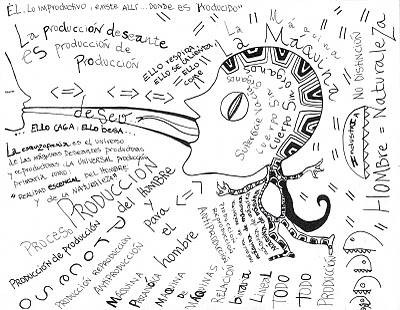 ÉL.. LO IMPRODUCTIVO, EXISTE ALLÍ... DONDE ES PRODUCIDO"
La producción deseante
es producción de
Producción
ELLO RESPIRA
ELLO SE CALIENTA
ELLO COME
deseo
... ELLO CAGA, ELLO BESA...
La esquizofrenia es el universo
de las máquinas deseantes productoras
y reproductoras. La universal producción
primaria como:
"REALIDAD ESENCIAL DEL HOMBRE
Y DE LA NATURALEZA"
PROCESO
PRODUCCIÓN
del Hombre
y
para
el
hombre
Producción de Producción
PROCESO
PRODUCCIÓN REPRODUCCIÓN
ANTIPRODUCCIÓN
MÁQUINA
PARANOICA
MÁQUINA
DE
MÁQUINAS
RELACIÓN
Binaria
LINEAL
TODO
TODO
PRODUCCIÓN
La Máquina
La Máquina
órganos
Cuerpo Sin
Cuerpo Sin
órganos
NO DISTINCIÓN
industria
HOMbre = Naturaleza